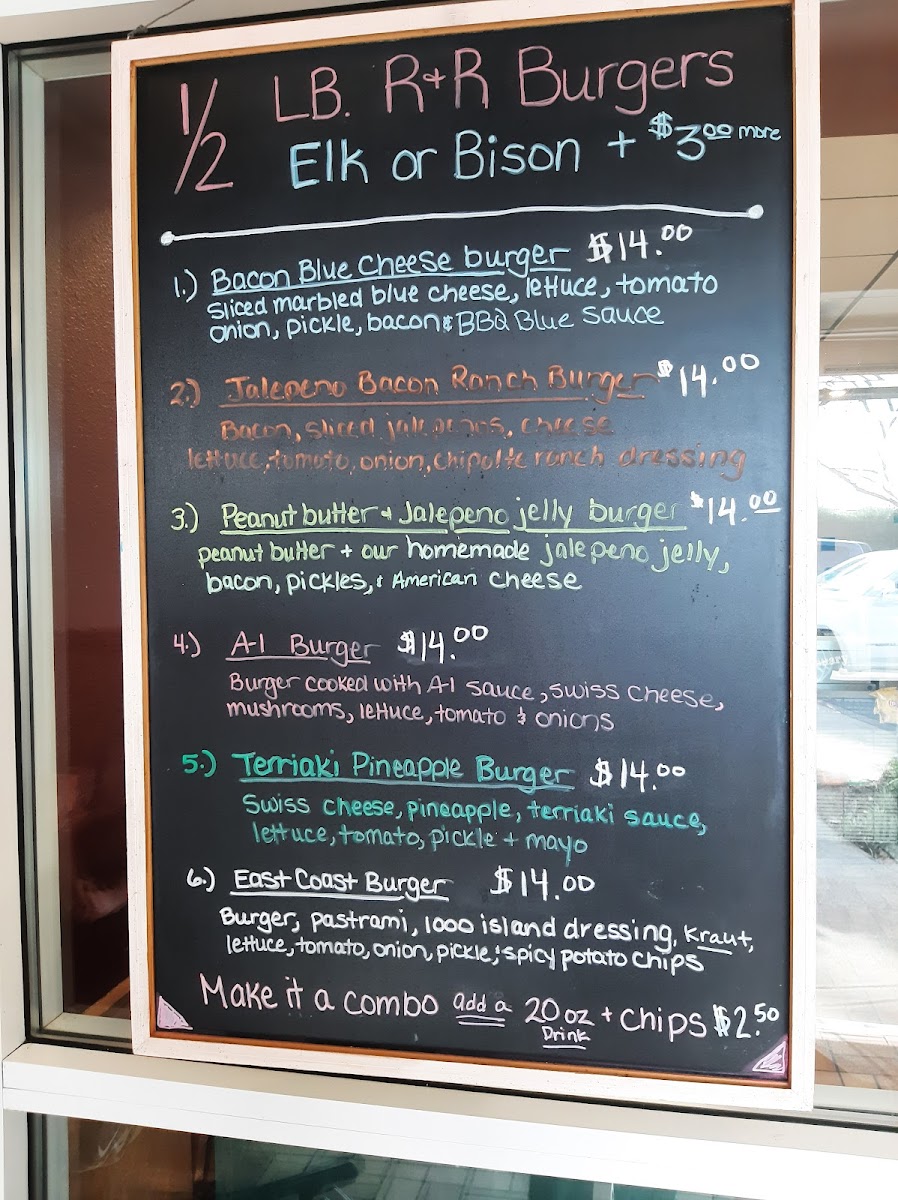 1/2 LB. R+R Burgers
Elk or Bison + $3.00 more
1.) Bacon Blue Cheese burger $14.00
sliced marbled blue cheese, lettuce, tomato
onion, pickle, bacon & BBQ Blue sauce
2.) Jalepeno Bacon Ranch Burger $14.00
Bacon, sliced jalepenos, cheese
lettuce, tomato, onion, chipolte ranch dressing
3.) Peanut butter + Jalepeno jelly burger $14.00
peanut butter + our homemade jalepeno jelly,
bacon, pickles, & American cheese
4.) A-1 Burger $14.00
Burger cooked with A-1 sauce, swiss cheese,
mushrooms, lettuce, tomato & onions
5.) Terriaki Pineapple Burger $14.00
Swiss cheese, pineapple, terriaki sauce,
lettuce, tomato, pickle + mayo
6.) East Coast Burger $14.00
Burger, pastrami, 1000 island dressing, Kraut,
lettuce, tomato, onion, pickle, & spicy potato chips
Make it a combo add a 20 oz + chips $2.50
Drink